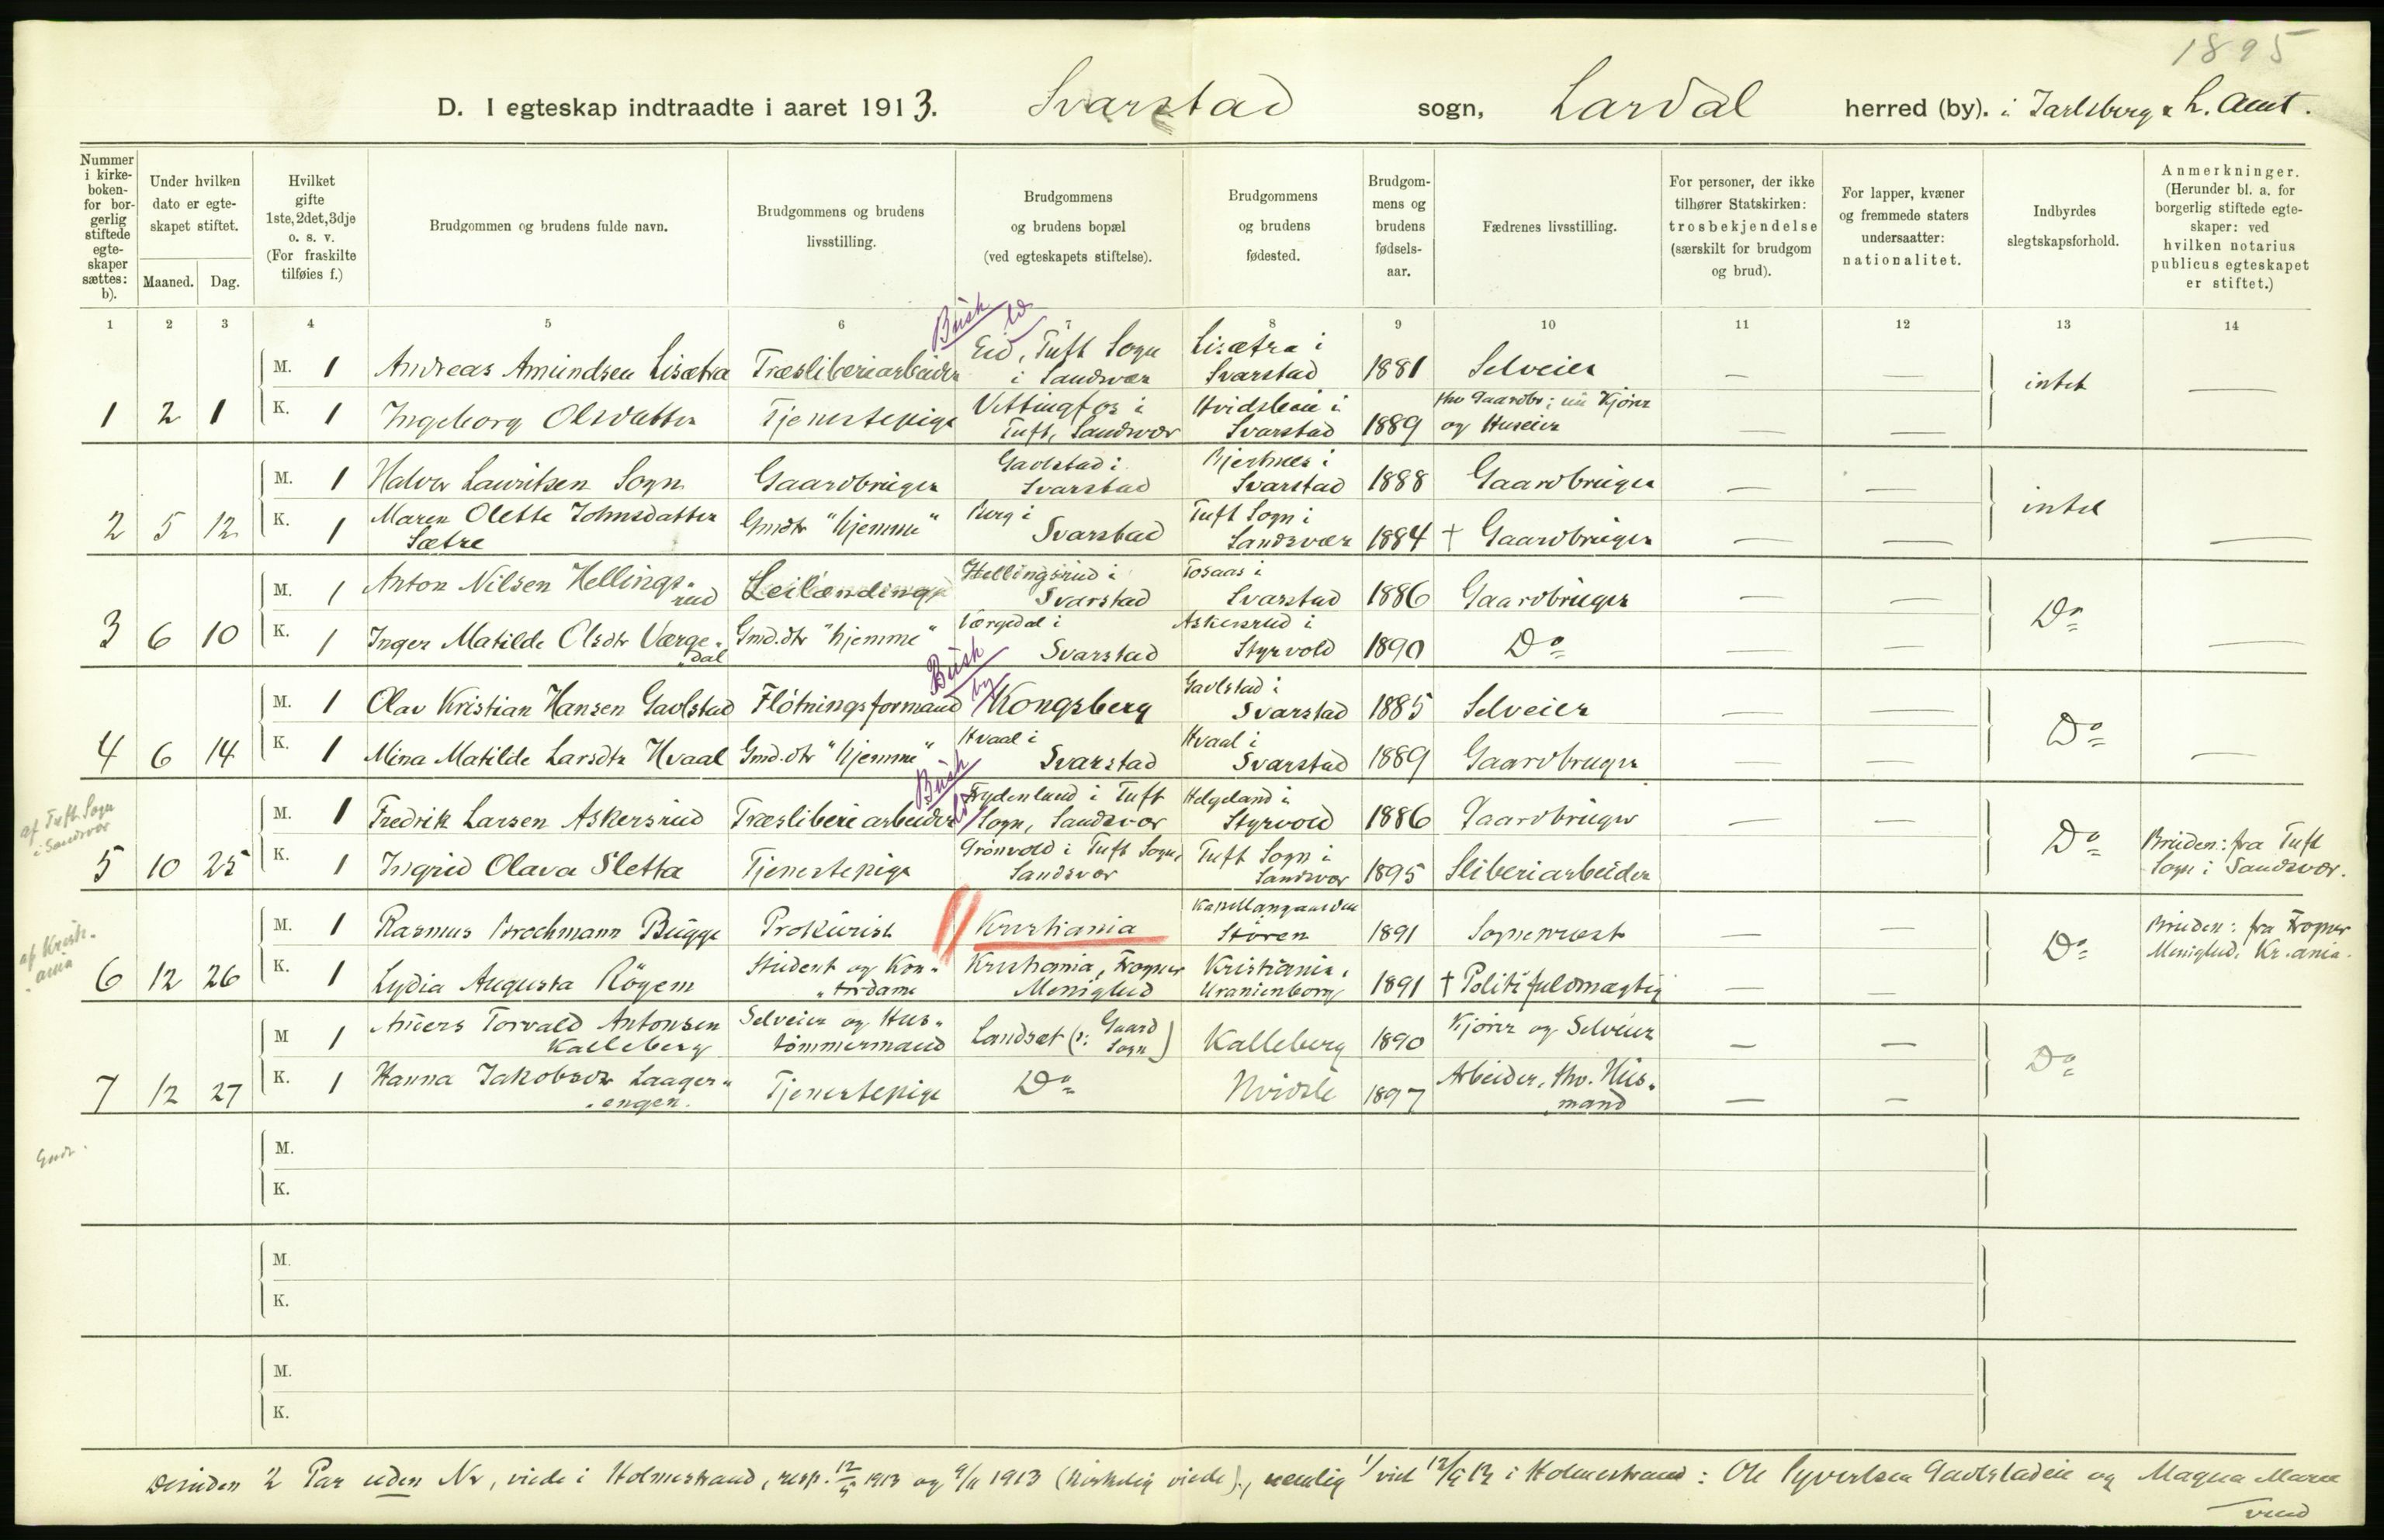 1895
D. I egteskap indtraadte i aaret 1913. Svarstad sogn, Lardal herred (by). i Jarlsberg & L. Amt.
Nummer i kirke-boken- for bor-gerlig stiftede egte-skaper sættes: b).
Under hvilken dato er egte-skapet stiftet.
Maaned. Dag.
Hvilket gifte 1ste, 2det, 3dje o. s. v. (For fraskilte tilføies f.)
Brudgommen og brudens fulde navn.
Brudgommens og brudens livsstilling.
Brudgommens og brudens bopæl (ved egteskapets stiftelse).
Brudgommens og brudens fødested.
Brudgom-mens og brudens fødsels-aar.
Fædrenes livsstilling.
For personer, der ikke tilhører Statskirken: trosbekjendelse (særskilt for brudgom og brud).
For lapper, kvæner og fremmede staters undersaatter: nationalitet.
Indbyrdes slegtskapsforhold.
Anmerkninger. (Herunder bl. a. for borgerlig stiftede egte-skaper: ved hvilken notarius publicus egteskapet er stiftet.)
1 2 3 4 5 6 7 8 9 10 11 12 13 14
Busk ld
M. 1 Andreas Amundsen Lisætra Træsliberiarbeider Eid, Tuft Sogn i Sandsvær Lisætra i Svarstad 1881 Selveier — — intet —
1 2 1 K. 1 Ingeborg Olsdatter Tjenestepige Vittingfos i Tuft, Sandsvær Hvidstein i Svarstad 1889 fhv Gaardbr; nu Kjører og Huseier — —
M. 1 Halvor Lauritsen Sogn Gaardbruger Gavlstad i Svarstad Bjerknes i Svarstad 1888 Gaardbruger — — intet
2 5 12 K. 1 Maren Olette Johnsdatter Sætre Gmdtr "hjemme" Berg i Svarstad Tuft Sogn i Sandsvær 1884 † Gaardbruger — — —
M. 1 Anton Nilsen Hellings-rud Leilænding Hellingsrud i Svarstad Tosaas i Svarstad 1886 Gaardbruger — — Do
3 6 10 K. 1 Inger Matilde Olsdtr Værge-dal Gmd.dtr "hjemme" Værgedal i Svarstad Askersrud i Styrvold 1890 Do — — —
Busk by
M. 1 Olav Kristian Hansen Gavlstad Flötningsformand Kongsberg Gavlstad i Svarstad 1885 Selveier — — Do
4 6 14 K. 1 Mina Matilde Larsdtr Hvaal Gmd.dtr "hjemme" Hvaal i Svarstad Hvaal i Svarstad 1889 Gaardbruger —
af Tuft Sogn i Sandsvær
Busk ld
M. 1 Fredrik Larsen Askersrud Træsliberiarbeider Frydenlund i Tuft Sogn, Sandsvær Helgeland i Styrvold 1886 Gaardbruger — — Do
5 10 25 K. 1 Ingrid Olava Sletta Tjenestepige Grönvold i Tuft Sogn, Sandsvær Tuft Sogn i Sandsvær 1895 Sliberiarbeider Bruden: fra Tuft Sogn i Sandsvær.
af Kristi-ania
M. 1 Rasmus Brochmann Bugge Prokurist Kristiania Kapellangaarden Stören 1891 Sogneprest — — Do Bruden: fra Frogner Menighed, Kr.ania.
6 12 26 K. 1 Lydia Augusta Rögem Student og Kon-tordame Kristiania, Frogner Menighed Kristiania, Uranienborg 1891 † Politifuldmægtig — —
M 1 Anders Torvald Antonsen Kalleberg Selveier og Hus-tömmermand Landsæt (o: Gaard Sogn) Kalleberg 1890 Kjører og Selveier — — Do
7 12 27 K. 1 Hanna Jakobsdtr Laager-engen. Tjenestepige Do Hvidste 1897 Arbeider, fhv. Hus-mand — —
M.
K.
M.
K.
M.
K.
Desuden 2 Par uden Nr, viede i Holmestrand, resp. 12/5 1913 og 9/11 1913 (kirkelig viede), nemlig 1/ viet 12/5 13 i Holmestrand: Ole Syvertsen Gavlstadeie og Magna Maren